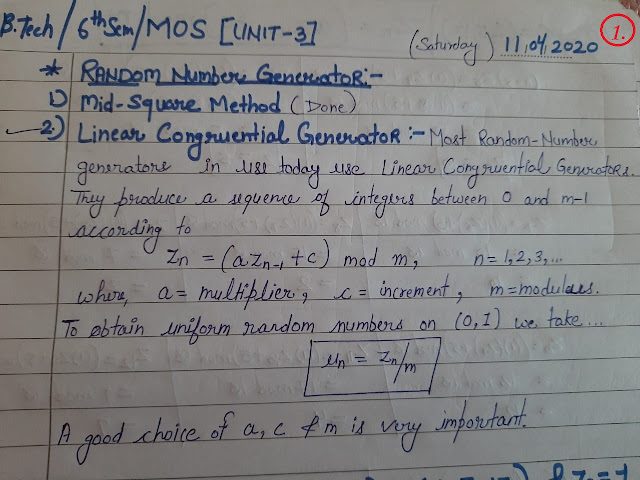 B.Tech / 6th Sem / MOS [UNIT-3]
1.
(Saturday) 11,04,2020
* RANDOM Number Generator:-
1) Mid-Square Method (Done)
2.) Linear Congruential Generator:- Most Random-Number
generators in use today use Linear Congruential Generators.
They produce a sequence of integers between 0 and m-1
according to
Zn = (a Zn-1 + c) mod m, n = 1,2,3,...
where, a = multiplier, c = increment, m = modulus.
To obtain uniform random numbers on (0,1) we take...
un = Zn/m
A good choice of a, c & m is very important.